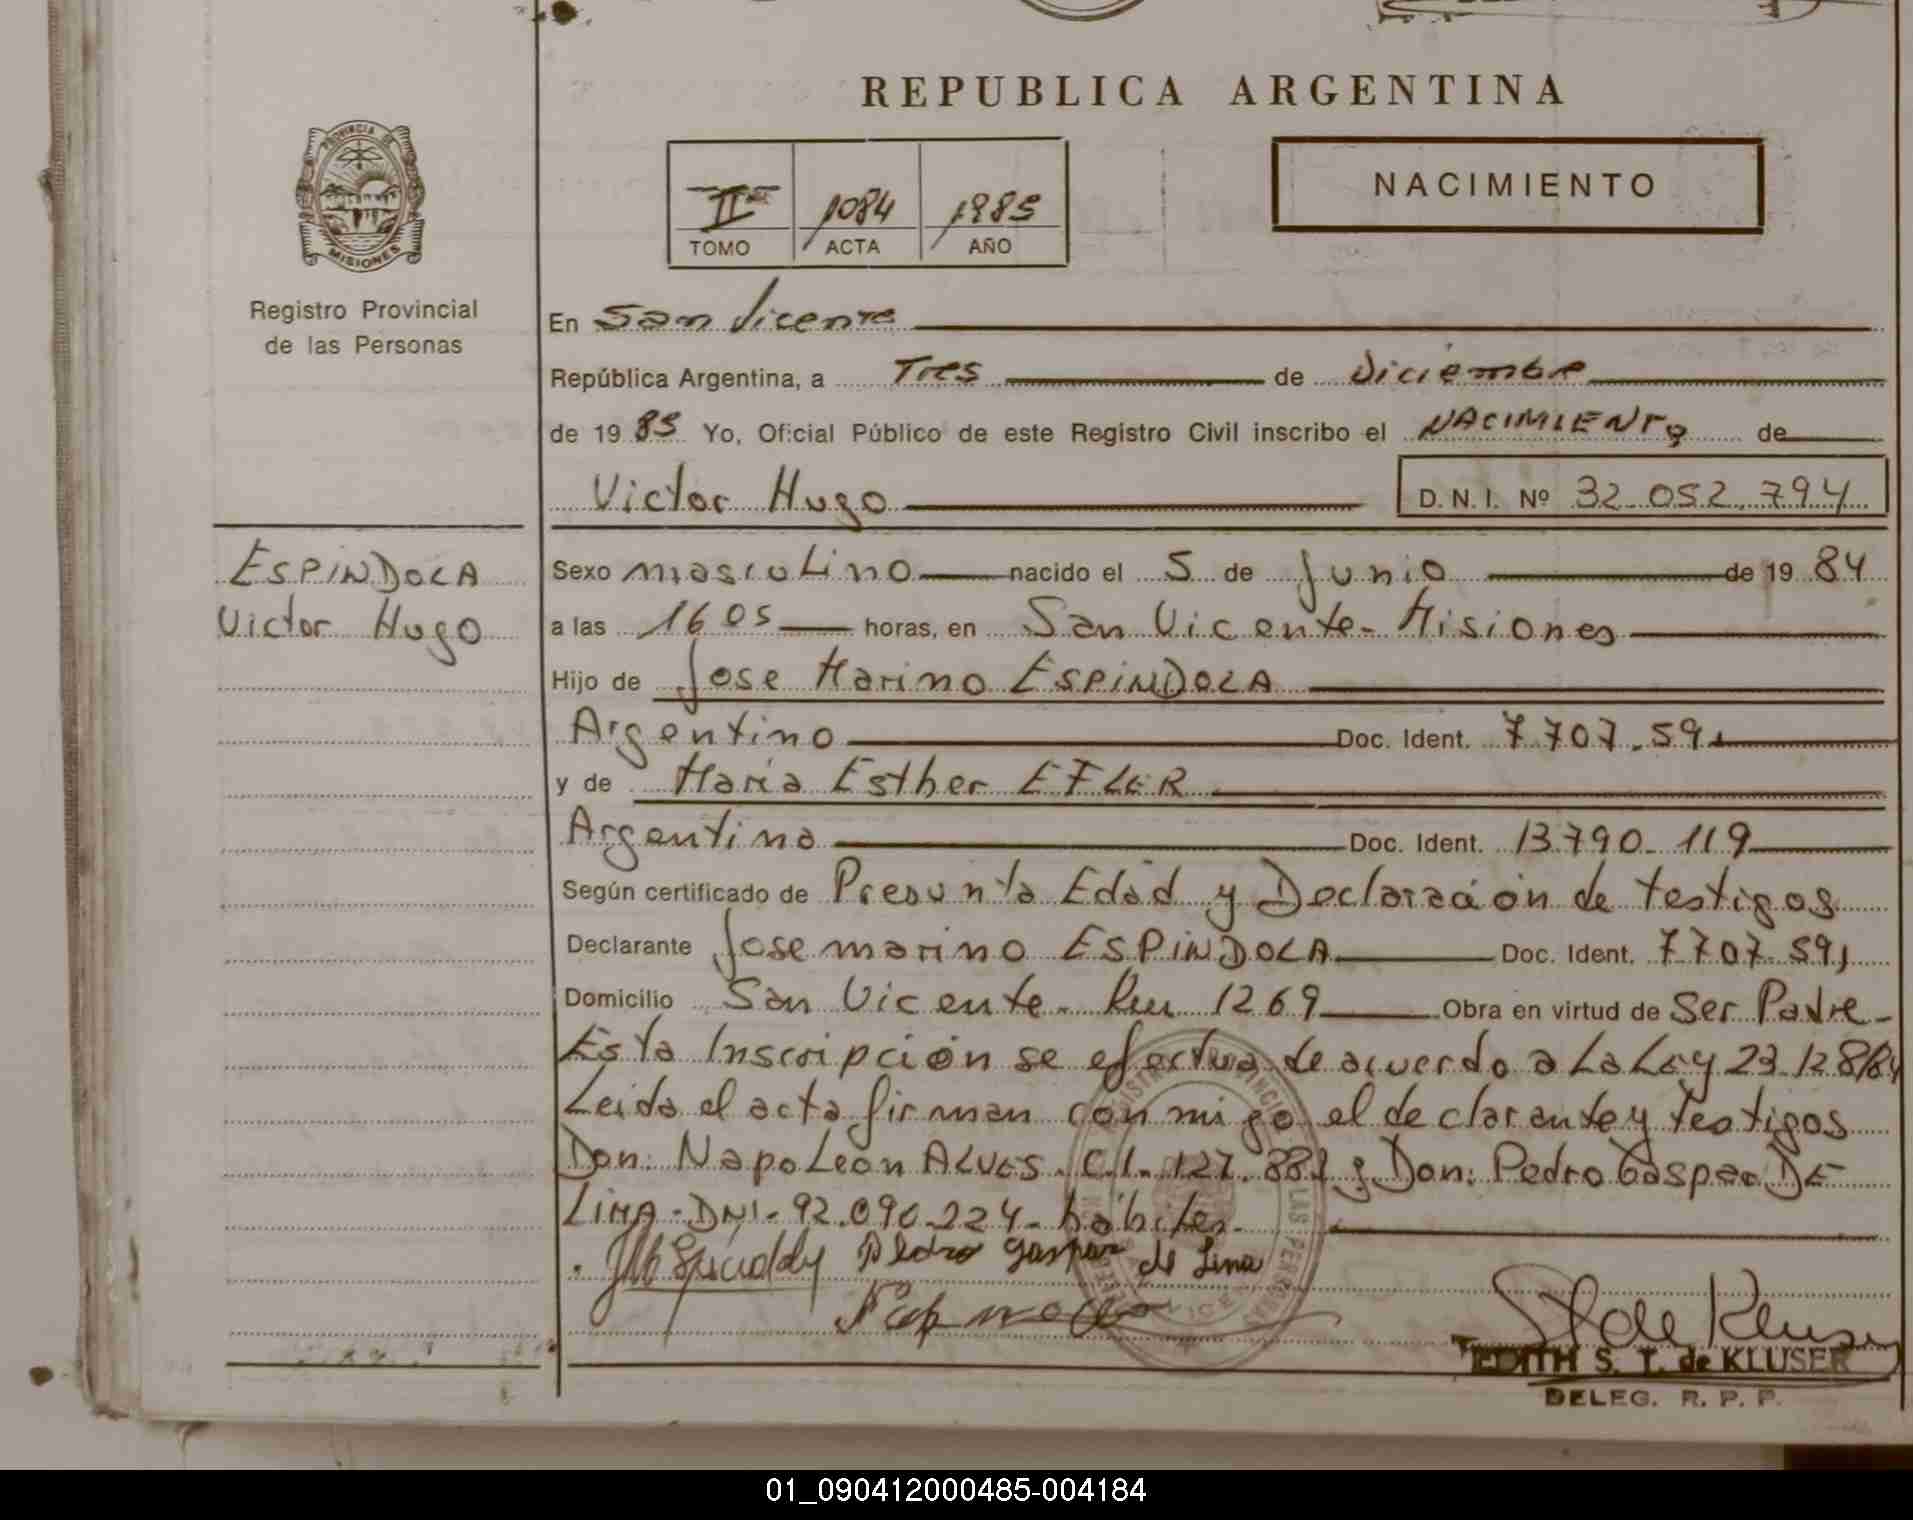 REPUBLICA ARGENTINA
PROVINCIA DE
MISIONES
Registro Provincial
de las Personas
II 1084 1985
TOMO ACTA AÑO
NACIMIENTO
En San Vicente
República Argentina, a Tres de Diciembre
de 19 85 Yo, Oficial Público de este Registro Civil inscribo el NACIMIENTO de
Victor Hugo D.N.I. Nº 32.052.794
ESPINDOLA
Victor Hugo
Sexo masculino nacido el 5 de Junio de 19 84
a las 16 05 horas, en San Vicente - Misiones
Hijo de Jose Marino ESPINDOLA
Argentino Doc. Ident. 7.707.591
y de Maria Esther EFLER
Argentina Doc. Ident. 13.790.119
Según certificado de Presunta Edad y Declaración de testigos
Declarante Jose marino ESPINDOLA Doc. Ident. 7.707.591
Domicilio San Vicente - Km 1269 Obra en virtud de Ser Padre -
Esta Inscripción se efectua de acuerdo a La Ley 23.128/84
Leida el acta firman con migo el declarante y testigos
Don: Napoleon ALVES. C.I. 127.882 y Don: Pedro Gaspar DE
LIMA - DNI - 92.090.224 - habiles -
Pedro gaspar de Lima
EDITH S. T. de KLUSER
DELEG. R. P. P.
01_090412000485-004184